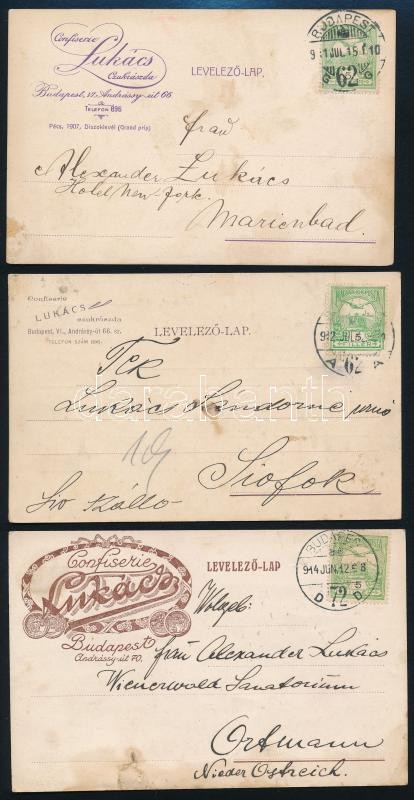 Confiserie
Lukács
Czukrászda
Budapest, VI. Andrássy-út 66
TELEFON 896
Pécs, 1907, Díszoklevél (Grand prix)
LEVELEZŐ-LAP.
BUDAPEST
62
Frau
Alexander Lukács
Hotel New-York.
Marienbad.
Confiserie
LUKÁCS
czukrászda
Budapest, VI., Andrássy-út 66. sz.
TELEFON SZÁM 896.
LEVELEZŐ-LAP.
FILLÉR
A 62 A
Tek
Lukács Sándorné
Siofok
Sio Szálló
darabanth
Confiserie
Lukács
Budapest
Andrássy-út 70.
LEVELEZŐ-LAP
BUDAPEST
914 JUN. 12
D 72 D
Frau Alexander Lukács
Wienerwald Sanatorium
Ortmann
Nieder Östreich.